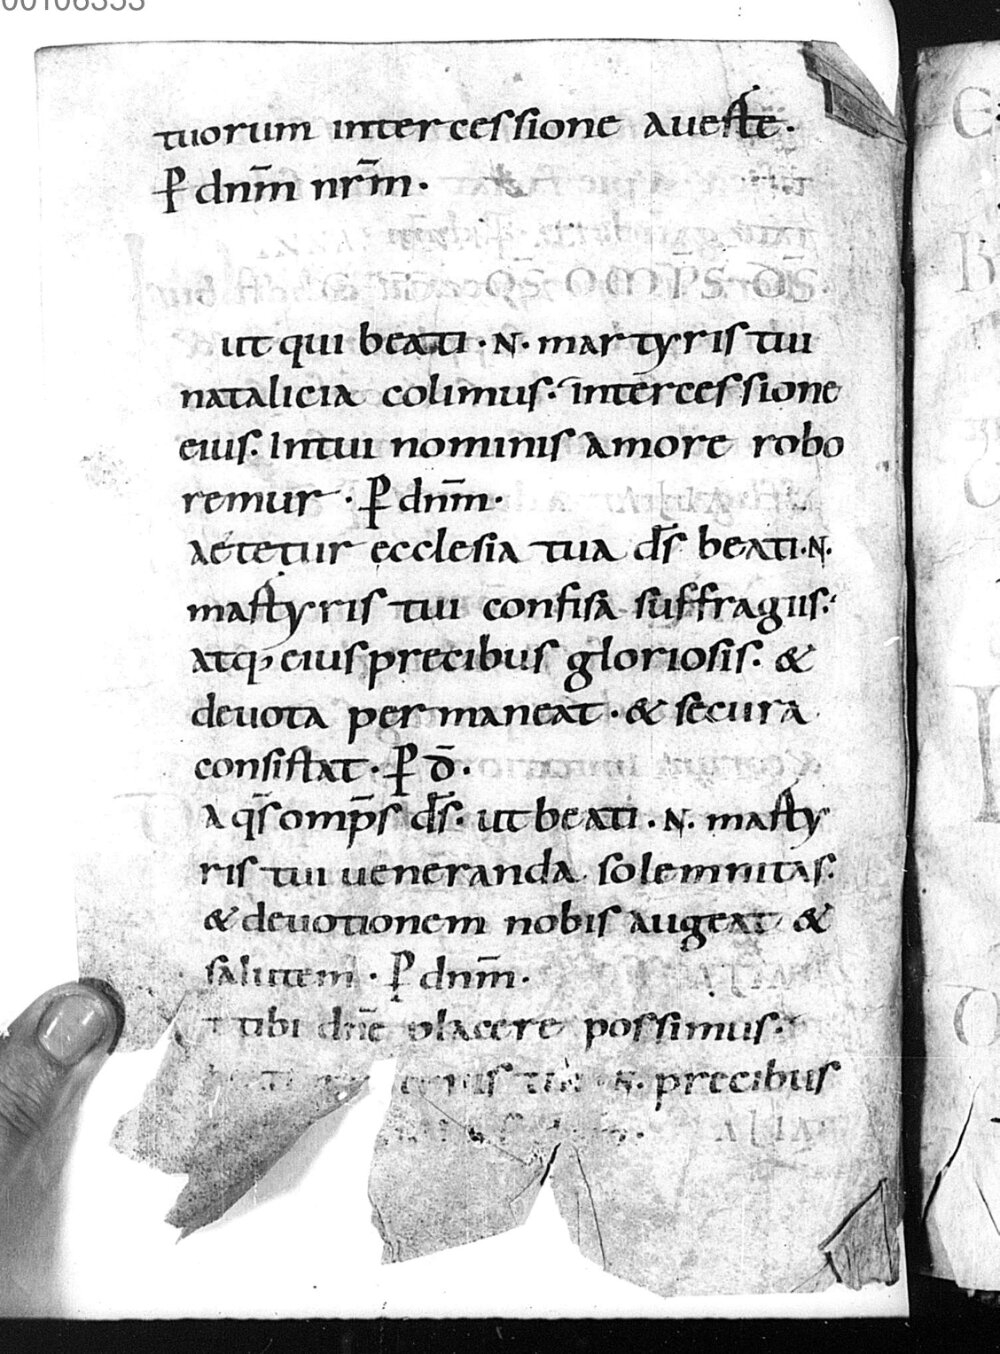 00106353
tuorum intercessione aueste.
P dnm̄ nr̄m.
QS OMPS DS
ut qui beati .N. martyris tui
natalicia colimus. intercessione
eius. Intui nominis amore robo
remur. P dnm̄.
aetetur ecclesia tua ds̄ beati .N.
martyris tui confisa suffragiis.
atq; eius precibus gloriosis. &
deuota permaneat. & secura
consistat. P D̄.
a qs̄ omps̄ ds̄. ut beati .N. marty
ris tui ueneranda solemnitas.
& deuotionem nobis augeat &
salutem. P dnm̄.
t tibi dnē placere possimus.
N. precibus